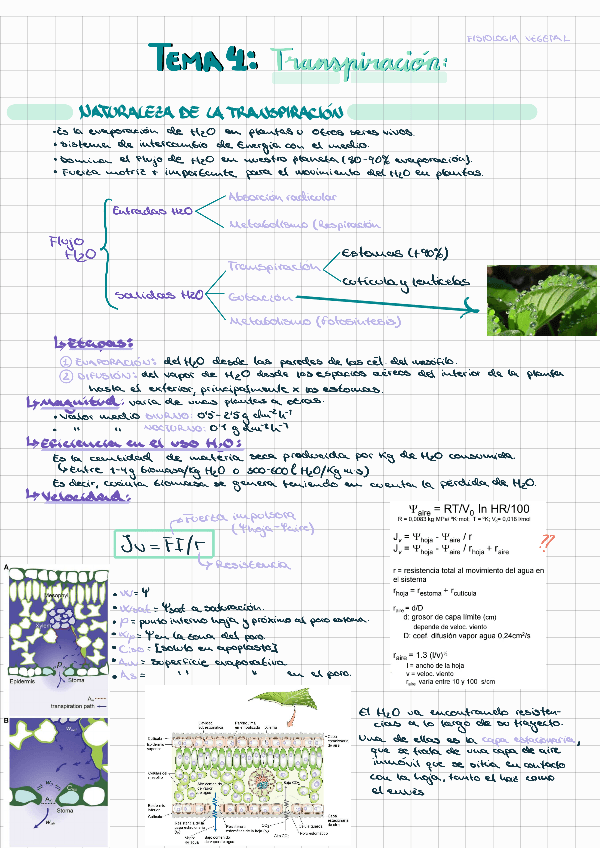 FISIOLOGÍA VEGETAL
TEMA 4: Transpiración:
NATURALEZA DE LA TRANSPIRACIÓN
• Es la evaporación de H2O en plantas u otros seres vivos.
• Sistema de intercambio de Energía con el medio.
• Dominan el Flujo de H2O en nuestro planeta (80-90% evaporación).
• Fuerza motriz + importante para el movimiento del H2O en plantas.
Flujo H2O
Entradas H2O
Absorción radicular
Metabolismo (Respiración
Salidas H2O
Transpiración
Estomas (+90%)
Cutícula y lenticelas
Gutación
Metabolismo (fotosíntesis)
↳ Etapas:
① EVAPORACIÓN: del H2O desde las paredes de las cél. del mesófilo.
② DIFUSIÓN: del vapor de H2O desde los espacios aéreos del interior de la planta
hasta el exterior, principalmente x los estomas.
↳ Magnitud: varía de unas plantas a otras.
• Valor medio DIURNO: 0'5-2'5 g dm-2 h-1
• " " NOCTURNO: 0'1 g dm-2 h-1
↳ Eficiencia en el uso H2O:
Es la cantidad de materia seca producida por Kg de H2O consumida.
↳ Entre 1-4g biomasa/Kg H2O o 300-600 l H2O/Kg m.s)
Es decir, cuánta biomasa se genera teniendo en cuenta la pérdida de H2O.
↳ Velocidad:
Fuerza impulsora
(Ψhoja - Ψaire)
Jv = FI/r
Resistencia
Ψaire = RT/V0 ln HR/100
Jv = Ψhoja - Ψaire / r
Jv = Ψhoja - Ψaire / rhoja + raire
??
r = resistencia total al movimiento del agua en
el sistema
rhoja = restoma + rcutícula
raire = d/D
d: grosor de capa límite (cm)
depende de veloc. viento
D: coef. difusión vapor agua 0.24cm2/s
l = ancho de la hoja
v = veloc. viento
raire varía entre 10 y 100 s/cm
A
Mesophyll
Xylem
Epidermis
Stoma
transpiration path
B
Stoma
• W = Ψ
• Wsat = Ψsat a saturación.
• P = punto interno hoja y próximo al poro estoma.
• Wp = Ψ en la zona del poro.
• Csbo = [soluto en apoplasto]
• Aw = Superficie evaporativa
• As = " " " en el poro.
El H2O va encontrando resisten-
cias a lo largo de su trayecto.
Una de ellas es la capa estacionaria,
que se trata de una capa de aire
inmóvil que se sitúa en contacto
con la hoja, tanto el haz como
el envés
Cutícula
Epidermis
superior
Epidermis
inferior
Cutícula